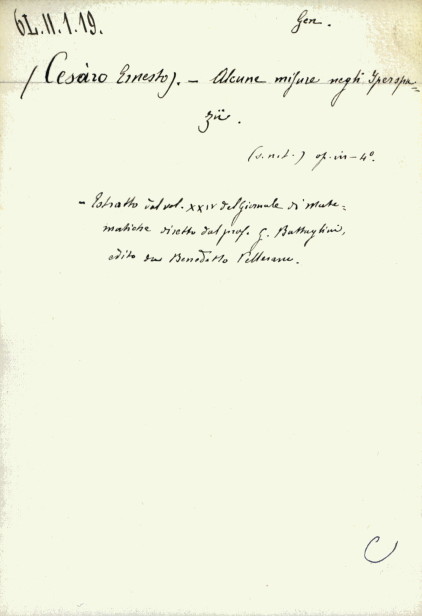 6L.II.1.19.
Gen.
(Cesàro Ernesto). – Alcune misure negli Iperspa=
zii.
(s.n.t.) op. in-4º.
– Estratto dal vol. XXIV del Giornale di mate=
matiche diretto dal prof. G. Battaglini,
edito da Benedetto Pellerano.
C